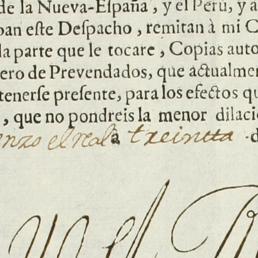 de la Nueva-España, y el Perù, y a
ban este Despacho, remitan à mi C
la parte que le tocare, Copias auto
ero de Prevendados, que actualmen
tenerse presente, para los efectos qu
, que no pondreis la menor dilacio
enzo el real à treintta d